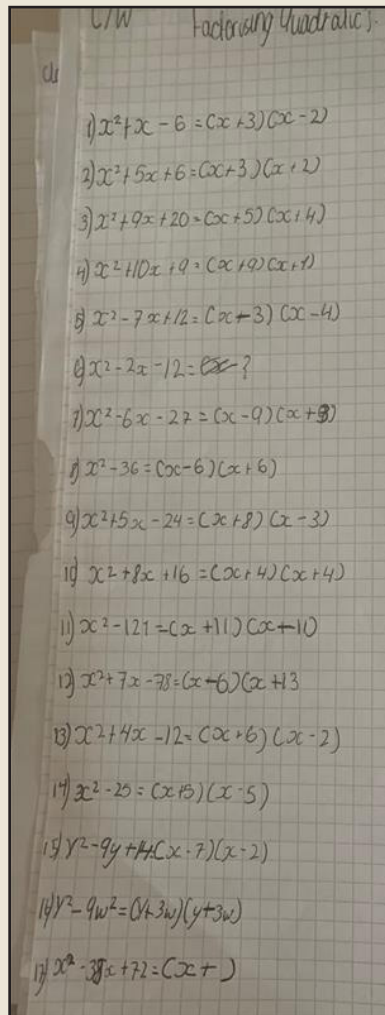 C/W Factorising Quadratics.
1) x²+x-6=(x+3)(x-2)
2) x²+5x+6=(x+3)(x+2)
3) x²+9x+20=(x+5)(x+4)
4) x²+10x+9=(x+9)(x+1)
5) x²-7x+12=(x-3)(x-4)
6) x²-2x-12= ?
7) x²-6x-27=(x-9)(x+3)
8) x²-36=(x-6)(x+6)
9) x²+5x-24=(x+8)(x-3)
10) x²+8x+16=(x+4)(x+4)
11) x²-121=(x+11)(x-11)
12) x²+7x-78=(x-6)(x+13
13) x²+4x-12=(x+6)(x-2)
14) x²-25=(x+5)(x-5)
15) y²-9y+14=(x-7)(x-2)
16) y²-9w²=(y+3w)(y+3w)
17) x²-38x+72=(x+ )